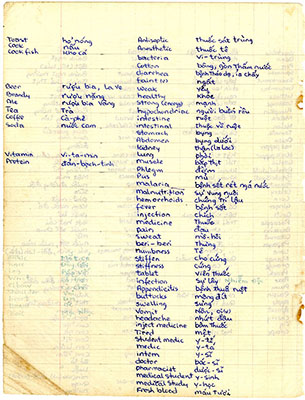 Toast hơ nóng
Cook nấu
Cook fish kho cá
Beer rượu bia, La Ve
Brandy rượu nặng
Ale rượu bia Vàng
Tea Trà
Coffe cà-phê
Soda nước cam
Vitamin vi-ta-min
Protein đản-bạch-tinh
Antiseptic thuốc sát trùng
Anesthetic thuốc tê
bacteria vi-trùng
Cotton bông, gòn thấm nước
diarrhea
faint (v) ngất
Weak yếu
healthy khỏe
Strong (energy) mạnh
hypochondriac người buồn rầu
intestine ruột
intestinal thuộc về ruột
Stomach bụng
Abdomen bụng dưới
Kidney
Lung phổi
muscle bắp thịt
Phlegm đờm
Pus mủ
malaria bệnh sốt rét ngã nước
malnutrition
hemorrhoids chứng trĩ lậu
fever bệnh sốt
injection chích
medicine Thuốc
pain đau
Sweat mồ-hôi
beri-beri Thũng
Numbness Tê
Stiffen cho cứng
stiffness cứng
tablet viên thuốc
infection sự lây
Appendicitis bệnh
buttocks mông đít
swelling sưng
Vomit
headache nhức đầu
inject medicine bơm thuốc
Tired mệt
Student medic y-tá
medic y-tá
intern y-sĩ
doctor bác-sĩ
pharmacist dược-sĩ
medical student y-sinh
medical study y-học
Fresh blood máu tươi